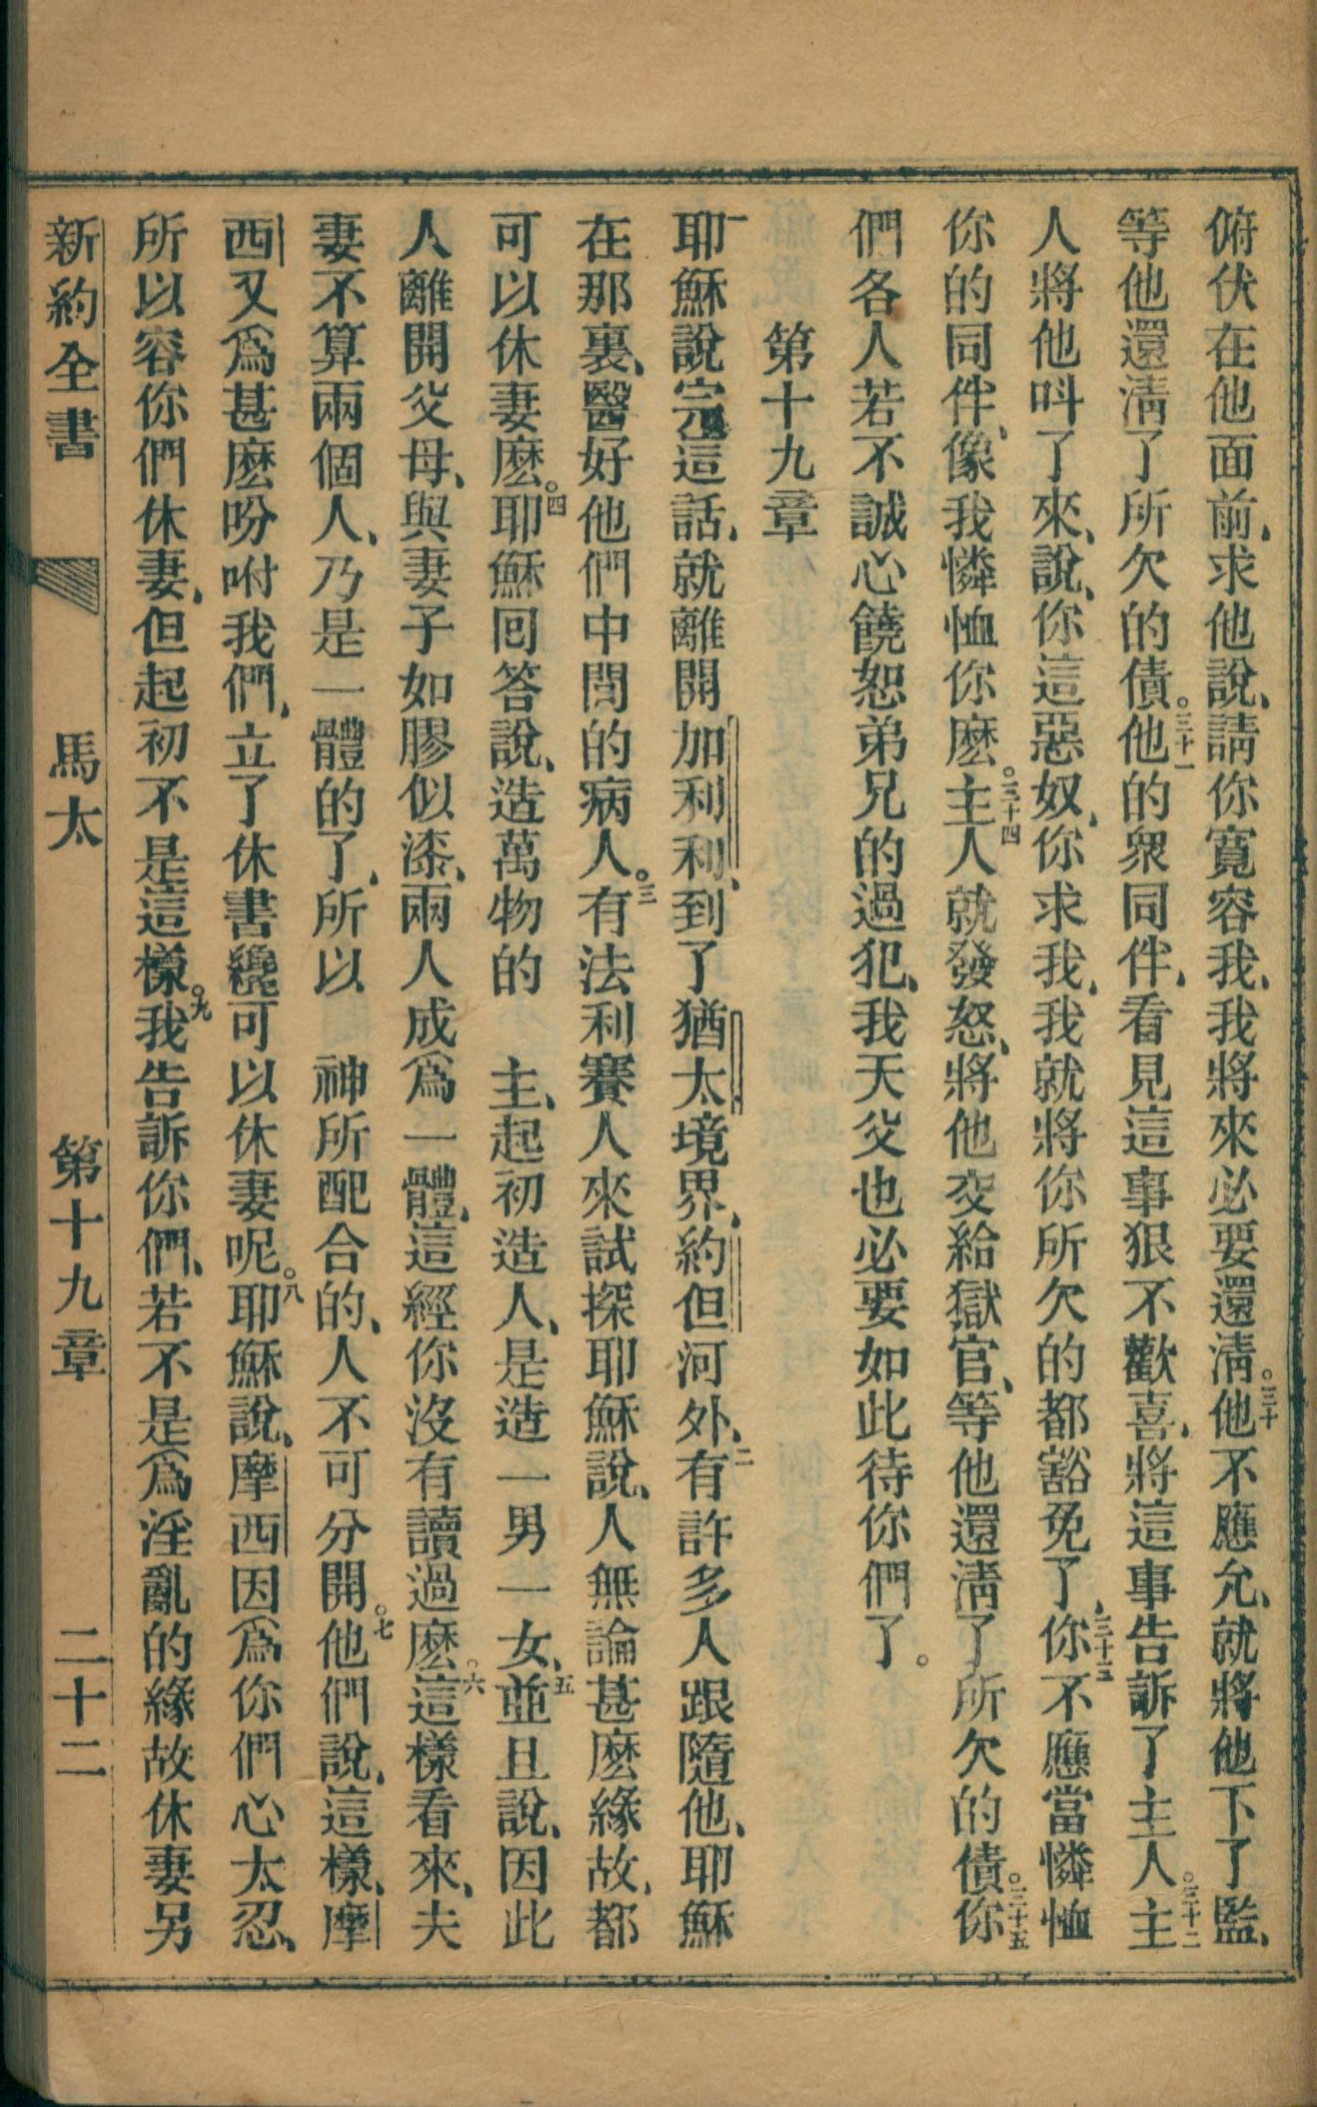 俯伏在他面前、求他說、請你寬容我、我將來必要還淸。三十他不應允、就將他下了監、
等他還淸了所欠的債。三十一他的衆同伴、看見這事狠不歡喜、將這事告訴了主人。三十二主
人將他呌了來、說、你這惡奴、你求我、我就將你所欠的都豁免了、三十三你不應當憐恤
你的同伴、像我憐恤你麽。三十四主人就發怒、將他交給獄官、等他還淸了所欠的債。三十五你
們各人若不誠心饒恕弟兄的過犯、我天父也必要如此待你們了。
第十九章
一耶穌說完這話、就離開加利利、到了猶太境界、約但河外、二有許多人跟隨他、耶穌
在那裏、醫好他們中間的病人。三有法利賽人來試探耶穌說、人無論甚麽緣故、都
可以休妻麽。四耶穌回答說、造萬物的　主、起初造人、是造一男一女、五並且說、因此
人離開父母、與妻子如膠似漆、兩人成爲一體、這經你沒有讀過麽。六這樣看來、夫
妻不算兩個人、乃是一體的了、所以　神所配合的、人不可分開。七他們說、這樣、摩
西又爲甚麽吩咐我們、立了休書纔可以休妻呢。八耶穌說、摩西因爲你們心太忍、
所以容你們休妻、但起初不是這樣。九我告訴你們、若不是爲淫亂的緣故休妻另
新約全書　馬太　第十九章　二十二